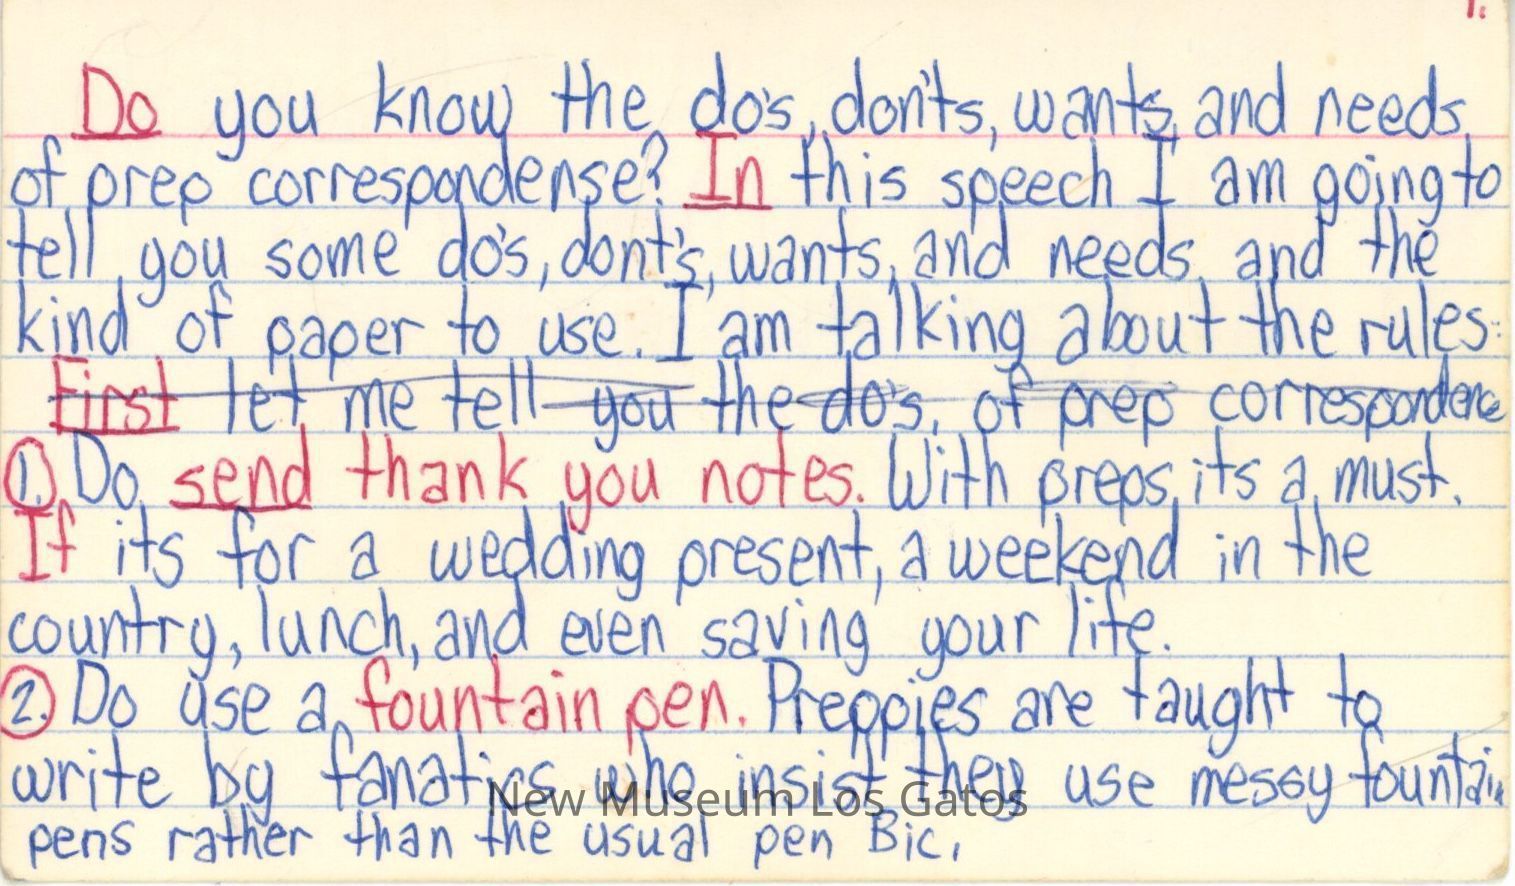 1.
Do you know the do's, don'ts, wants, and needs,
of prep correspondense? In this speech I am going to
tell you some do's, dont's, wants, and needs, and the
kind of paper to use. I am talking about the rules:
First let me tell you the do's, of prep correspondence
1. Do send thank you notes. With preps, its a must.
If its for a wedding present, a weekend in the
country, lunch, and even saving your life.
2. Do use a fountain pen. Preppies are taught to
write by fanatics who insist they use messy fountain
pens rather than the usual pen Bic.
New Museum Los Gatos